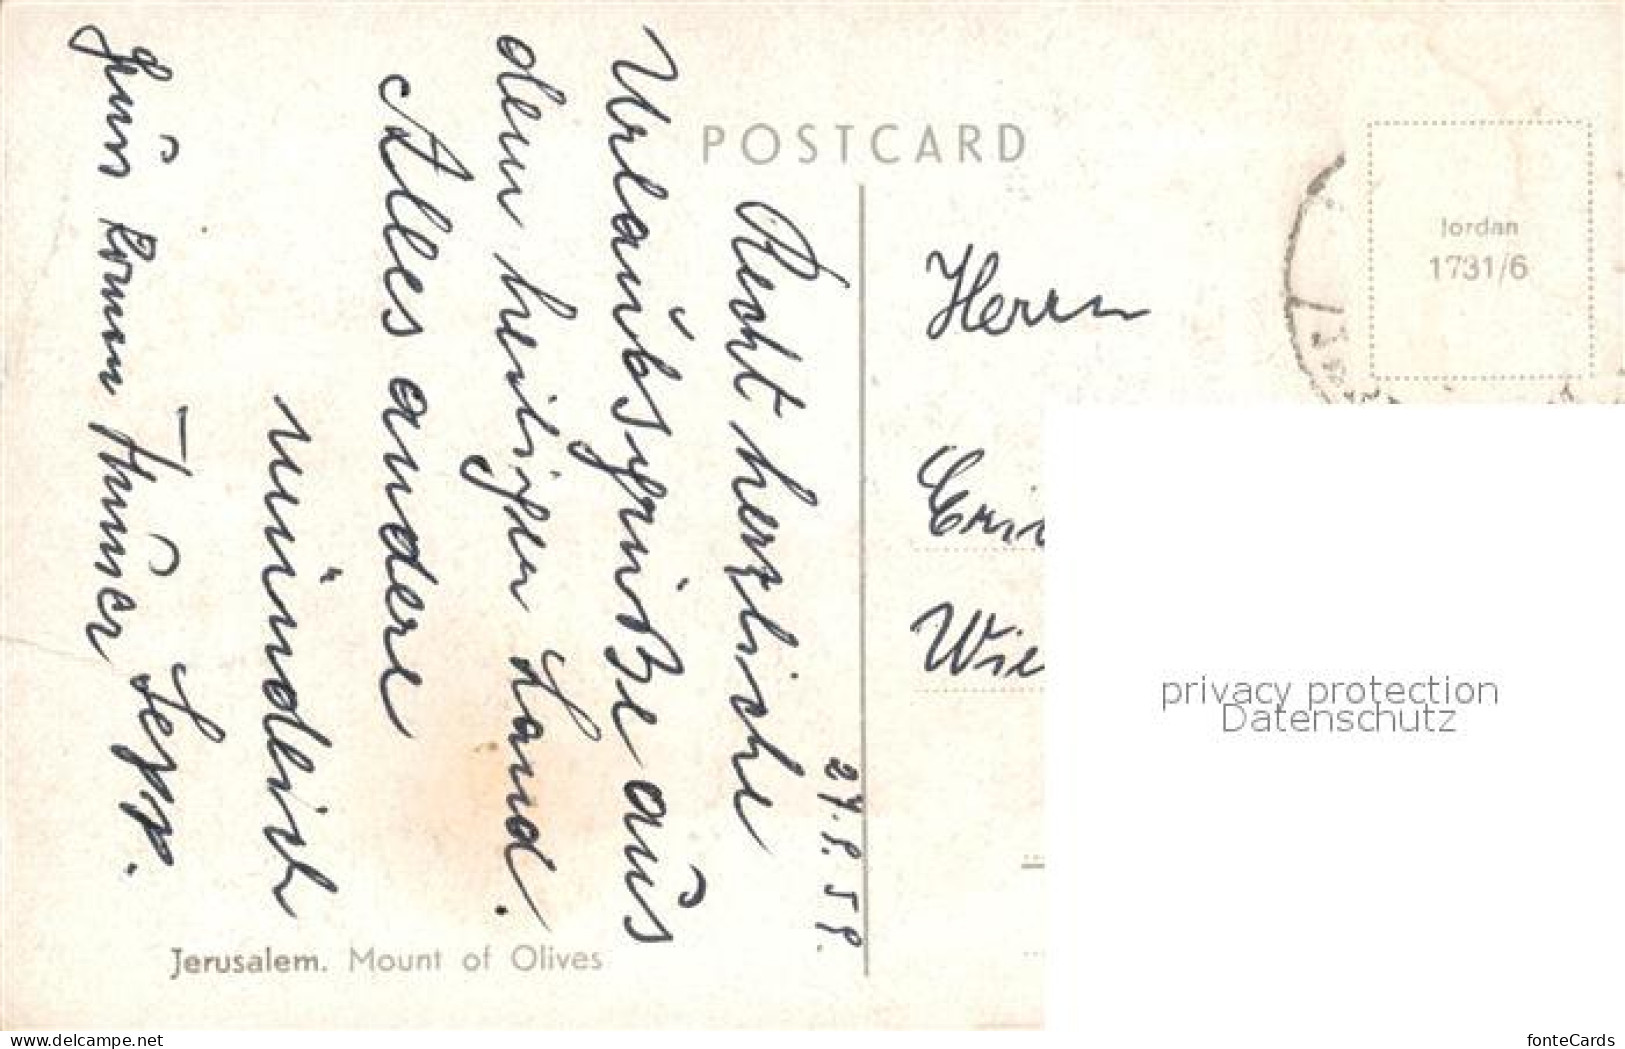 POSTCARD
Jordan
1731/6
27.8.59.
Recht herzliche
Urlaubsgrüße aus
dem heiligen Land.
Alles andere
mündlich
Sepp.
Herrn
Wie
Jerusalem. Mount of Olives
privacy protection
Datenschutz
www.delcampe.net
fonteCards